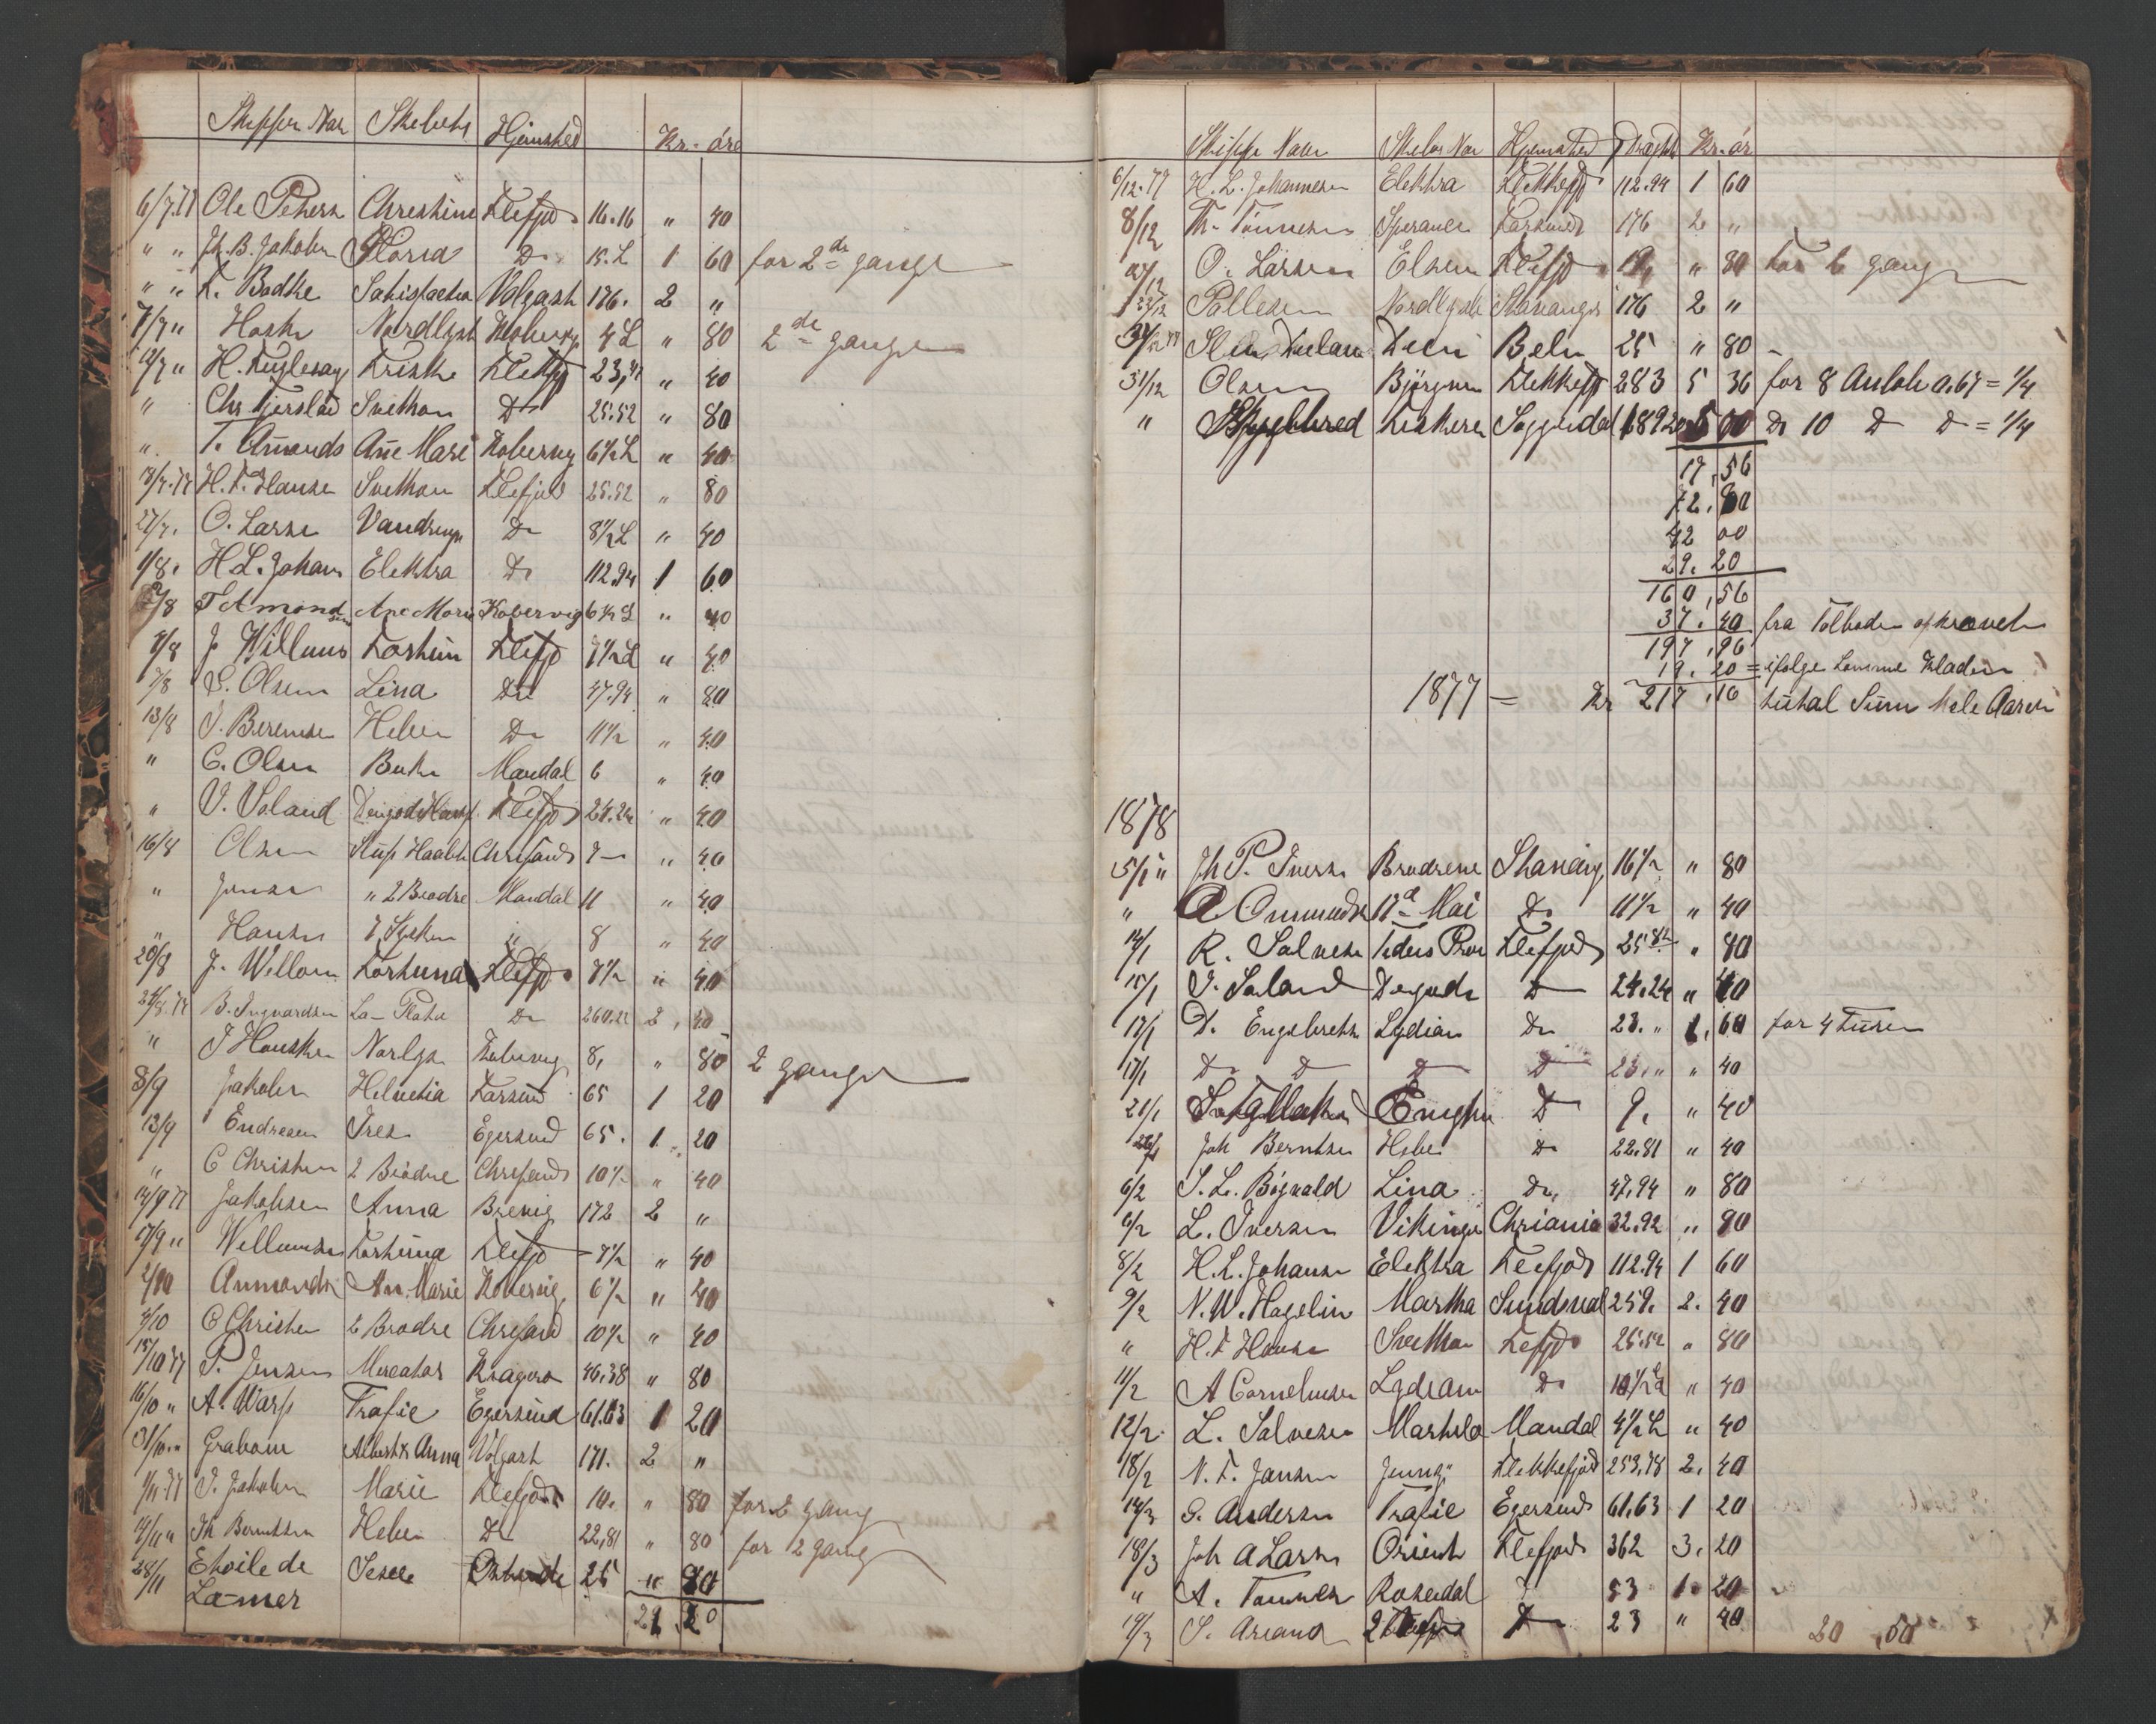 Skipper Nav Skebets Hjemsted Kr. øre
6/7.77 Ole Peters Chrestine Klefjod 16.16 " 40
" " Jh. B. Jakobsen Gloria Do 15.L 1 60 for 2de gange
" " Bodke Satisfaction Volgast 176. 2 "
7/7 " Nordlyst Kobervig 4L " 80 2de gange
12/7 " H. Fuglevag Friske Klefjd 23, " 40
" Chr. Svithun Do 25.52 " 80
" T. Amonds Ane Mari Kobervig 6½L " 40
18/7.77 H. F. Hansen Svithun Klefjod 25.52 " 80
27/7. O. Larsen Vandringen Do 8½L " 40
1/8. H. L. Johans Elektra Do 112.94 1 60
2/8 T Amondsen Ane Marie Kobervig 6½L " 40
4/8 J Willums Fortun Klefjd 7½L " 40
7/8 S. Olsen Lina Do 47.94 " 80
13/8 J. Berentsen Heben Do 11½ " 40
" C. Olsen Mandal 6 " 40
" V. Soland Klefjd 24.24 " 40
16/8 Olsen Slup Haabet Chresand 7 " 40
" Jensen " 2 Brødre Mandal 11 " 40
" Hansen 7 Sysken " 8 " 40
20/8 J. Willom Fortuna Klefjd 7½ " 40
24/8.77 B. Ingvardsen La Plata Do 260.22 2, 40
" J Hansken Norlys Kobervig 8, " 80 2 gange
8/9 Jakobsen Helvetia Farsund 65 1 20
13/9 Endresen Tres Egersund 65. 1. 20
" C Christen 2 Brødre Chresand 10½ " 40
14/9 77 Jakobsen Anna Brevig 172 2 "
17/9 " Willumsen Fortuna Klefjd 7½ " 40
2/10 Anmonds An. Marie Kobervig 6½ " 40
4/10 C Christen 2 Brødre Chresand 10½ " 40
15/10 77 P. Jensen Mercator Kragerø 46.38 " 80
16/10 " A. Warp Trafic Egersund 61.63 1 20
31/10. " Grabow Albert & Anna Volgast 171. 2 "
1/11.77 J. Jakobsen Marie Klefjod 10. " 80 for 2 gang
4/11 " Jh Berentsen Heben Do 22,81 " 80 for 2 gang
28/11 Etoile de Ostende 25 " 80
La-mer
29.20
Skipp Navn Skebs Nav Hjemsted Drægt Kr. ør
6/12.77 H. L. Johannesen Elektra Flekkefjd 112.94 1 60
8/12 Th. Tønnesen Sperance Farsund 176 2 "
O. Larsen Elsen Klefjd 19, " 80 for 2 gang
22/12 Pallesen Nordlyset Stavanger 176 2 "
Belu 25 " 80
31/12 Olsen Bjørgvin Flekkefjd 283 5 36 for 8 Anløb a. 67 = ¼
" Sogndal 189 20 5 00 Do 10 Do Do = ¼
17,56
72.80
42 00
29.20
160,56
37.40 fra Tolboden opkrævet
197,96
19.20 = ifølge Kladen
1877 = Kr 217.16 total Sum hele Aaret
1878
5/1 " Jh P. Ivers Brødrene Stavang 16½ " 80
" O. Omunds 17d Mai Do 11½ " 40
14/1 R. Salvesen Tiders Prøve Klefjod 25 82 " 80
15/1 J. Soland Degode Do 24.24 " 40
17/1 D. Engelbretsen Lydian Do 23. " 1. 60 for 4 Turen
17/1 Do Do Do Do 23. " " 40
21/1 Enighe Do 9. " 40
26/1 Joh Berntsen Hebe Do 22.81 " 40
6/2 S. L. Bøgvald Lina Do, 47,94 " 80
6/2 L. Iversen Vikingen Chriania 32.92 " 80
8/2 H. L. Johansen Elektra Klefjod 112.94 1 60
9/2 N. W. Hagelin Martha Sundsval 259. 2. 40
" H. F Hansen Svithun Kefjd 25.52 " 80
11/2 A Corneliusen Lydiam Do 10½ " 40
12/2 L. Salvesen Mathilde Mandal 4½ L " 40
18/2 N. F. Jansen Jenny Flekkefjod 253.78 2. 40
14/3 G. Andersen Trafic Egersund 61.63 1 20
18/3 Joh A Larsen Orient Klefjod 362 3. 20
" A. Tønnesen Rosedal D 53 1. 20
19/3 S. Aréand Do 23 " 40
20 50